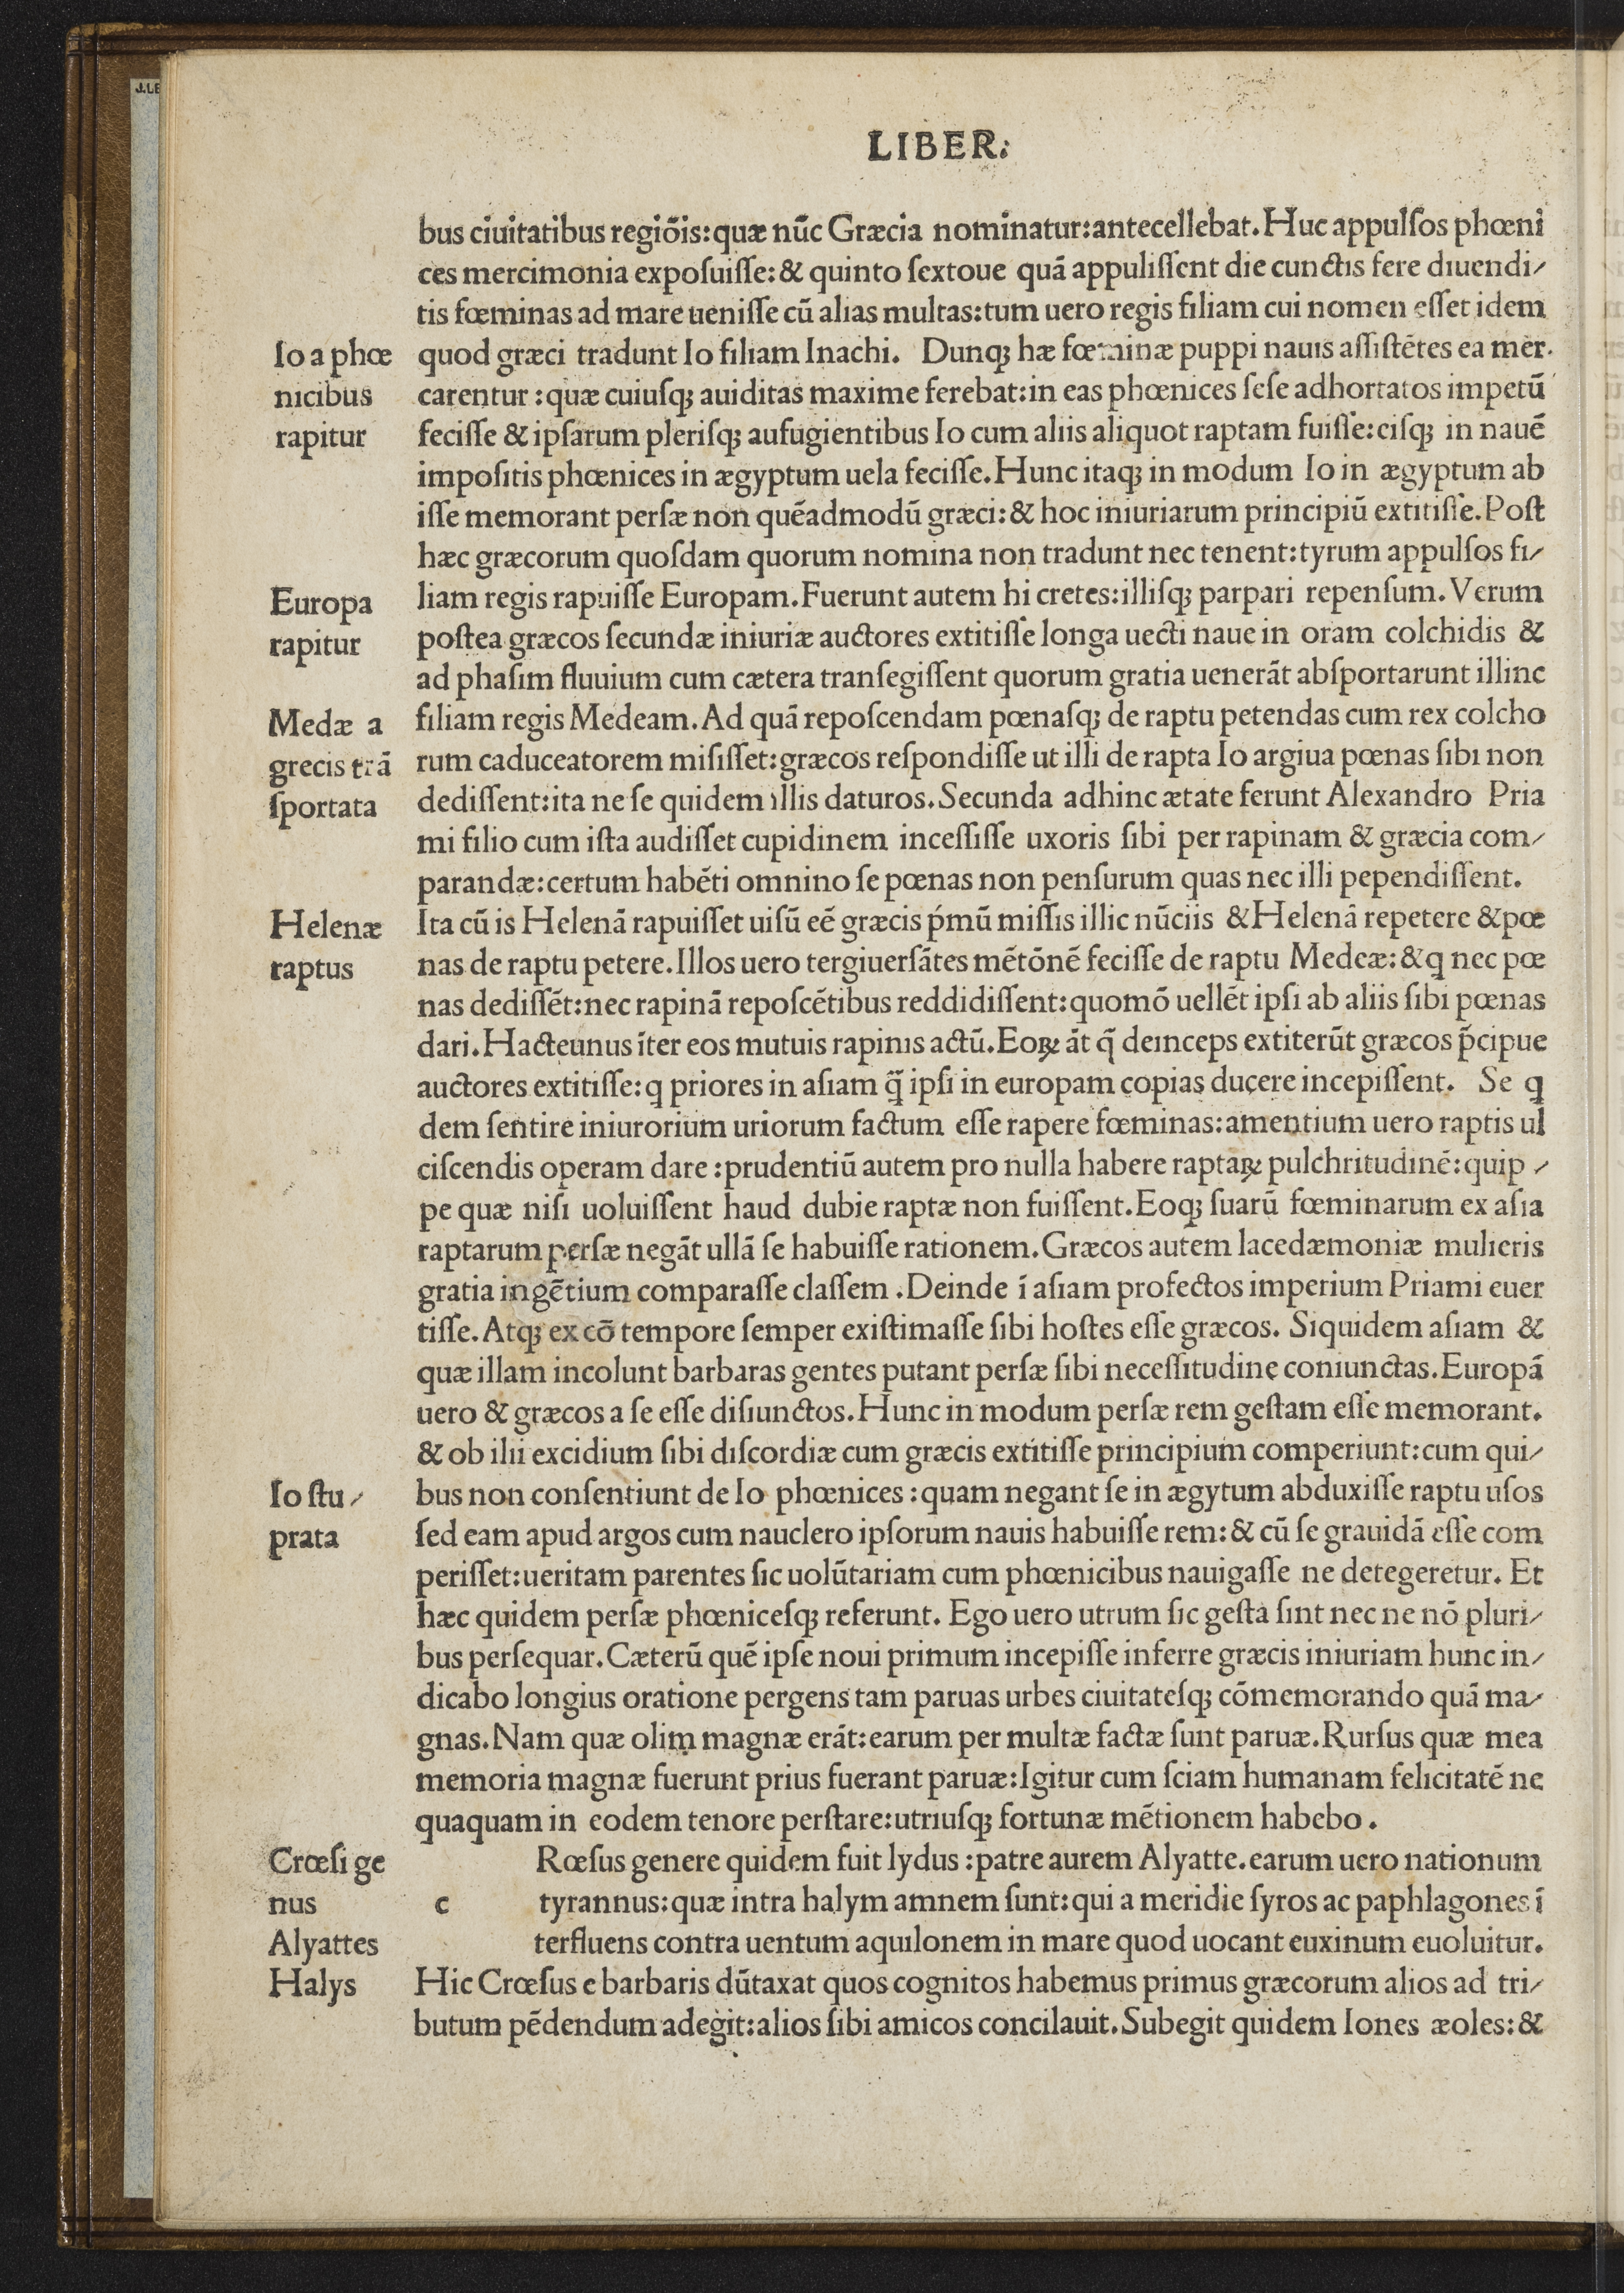 J.LE
LIBER.
bus ciuitatibus regiõis:quæ nũc Græcia nominatur:antecellebat.Huc appulſos phœni
ces mercimonia expoſuiſſe:& quinto ſextoue quã appuliſſent die cunctis fere diuendi/
tis fœminas ad mare ueniſſe cũ alias multas:tum uero regis filiam cui nomen eſſet idem
Io a phœ
nicibus
rapitur
quod græci tradunt Io filiam Inachi. Dunqꝫ hæ fœminæ puppi nauis aſſiſtẽtes ea mer.
carentur :quæ cuiuſqꝫ auiditas maxime ferebat:in eas phœnices ſeſe adhortatos impetũ
feciſſe & ipſarum pleriſqꝫ aufugientibus Io cum aliis aliquot raptam fuiſſe:eiſqꝫ in nauẽ
impoſitis phœnices in ægyptum uela feciſſe.Hunc itaqꝫ in modum Io in ægyptum ab
iſſe memorant perſæ non quẽadmodũ græci:& hoc iniuriarum principiũ extitiſſe.Poſt
hæc græcorum quoſdam quorum nomina non tradunt nec tenent:tyrum appulſos fi/
Europa
rapitur
liam regis rapuiſſe Europam.Fuerunt autem hi cretes:illiſqꝫ parpari repenſum.Verum
poſtea græcos ſecundæ iniuriæ auctores extitiſſe longa uecti naue in oram colchidis &
ad phaſim fluuium cum cætera tranſegiſſent quorum gratia uenerãt abſportarunt illinc
Medæ a
grecis trã
ſportata
filiam regis Medeam.Ad quã repoſcendam pœnaſqꝫ de raptu petendas cum rex colcho
rum caduceatorem miſiſſet:græcos reſpondiſſe ut illi de rapta Io argiua pœnas ſibi non
dediſſent:ita ne ſe quidem illis daturos.Secunda adhinc ætate ferunt Alexandro Pria
mi filio cum iſta audiſſet cupidinem inceſſiſſe uxoris ſibi per rapinam & græcia com/
parandæ:certum habẽti omnino ſe pœnas non penſurum quas nec illi pependiſſent.
Helenæ
raptus
Ita cũ is Helenã rapuiſſet uiſũ eẽ græcis ṕmũ miſſis illic nũciis & Helenã repetere & pœ
nas de raptu petere.Illos uero tergiuerſãtes mẽtõnẽ feciſſe de raptu Medeæ:& q nec pœ
nas dediſſẽt:nec rapinã repoſcẽtibus reddidiſſent:quomõ uellẽt ipſi ab aliis ſibi pœnas
dari.Hacteunus ĩter eos mutuis rapinis actũ.Eoꝝ ãt q̃ deinceps extiterũt græcos p̃cipue
auctores extitiſſe:q priores in aſiam q̃ ipſi in europam copias ducere incepiſſent. Se q
dem ſentire iniurorium uriorum factum eſſe rapere fœminas:amentium uero raptis ul
ciſcendis operam dare :prudentiũ autem pro nulla habere raptaꝝ pulchritudinẽ:quip /
pe quæ niſi uoluiſſent haud dubie raptæ non fuiſſent.Eoqꝫ ſuarũ fœminarum ex aſia
raptarum perſæ negãt ullã ſe habuiſſe rationem.Græcos autem lacedæmoniæ mulieris
gratia ingẽtium comparaſſe claſſem .Deinde ĩ aſiam profectos imperium Priami euer
tiſſe.Atqꝫ ex eõ tempore ſemper exiſtimaſſe ſibi hoſtes eſſe græcos. Siquidem aſiam &
quæ illam incolunt barbaras gentes putant perſæ ſibi neceſſitudine coniunctas.Europã
uero & græcos a ſe eſſe diſiunctos.Hunc in modum perſæ rem geſtam eſſe memorant.
& ob ilii excidium ſibi diſcordiæ cum græcis extitiſſe principium comperiunt:cum qui/
Io ſtu/
prata
bus non conſentiunt de Io phœnices :quam negant ſe in ægytum abduxiſſe raptu uſos
ſed eam apud argos cum nauclero ipſorum nauis habuiſſe rem:& cũ ſe grauidã eſſe com
periſſet:ueritam parentes ſic uolũtariam cum phœnicibus nauigaſſe ne detegeretur. Et
hæc quidem perſæ phœniceſqꝫ referunt. Ego uero utrum ſic geſta ſint nec ne nõ pluri/
bus perſequar.Cæterũ quẽ ipſe noui primum incepiſſe inferre græcis iniuriam hunc in/
dicabo longius oratione pergens tam paruas urbes ciuitateſqꝫ cõmemorando quã ma/
gnas.Nam quæ olim magnæ erãt:earum per multæ factæ ſunt paruæ.Rurſus quæ mea
memoria magnæ fuerunt prius fuerant paruæ:Igitur cum ſciam humanam felicitatẽ ne
quaquam in eodem tenore perſtare:utriuſqꝫ fortunæ mẽtionem habebo .
Crœſi ge
nus
Alyattes
Halys
Rœſus genere quidem fuit lydus :patre aurem Alyatte.earum uero nationum
c tyrannus:quæ intra halym amnem ſunt:qui a meridie ſyros ac paphlagones ĩ
terfluens contra uentum aquilonem in mare quod uocant euxinum euoluitur.
Hic Crœſus e barbaris dũtaxat quos cognitos habemus primus græcorum alios ad tri/
butum pẽdendum adegit:alios ſibi amicos concilauit.Subegit quidem Iones æoles:&